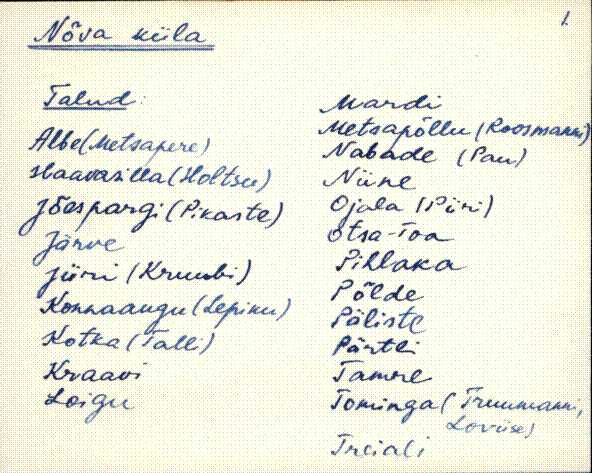 1.
Nõva küla
Talud:
Albe (Metsapere)
Haavasilla (Holtsu)
Jõespargi (Pikaste)
Järve
Jüri (Kruubi)
Konnaaugu (Lepiku)
Kotka (Talli)
Kraavi
Loigu
Mardi
Metsapõllu (Roosmanni)
Nabade (Pau)
Niine
Ojala (Piiri)
Otsa-Toa
Pihlaka
Põlde
Päliste
Pärtli
Tamme
Tominga (Truumanni,
Loviise)
Treiali